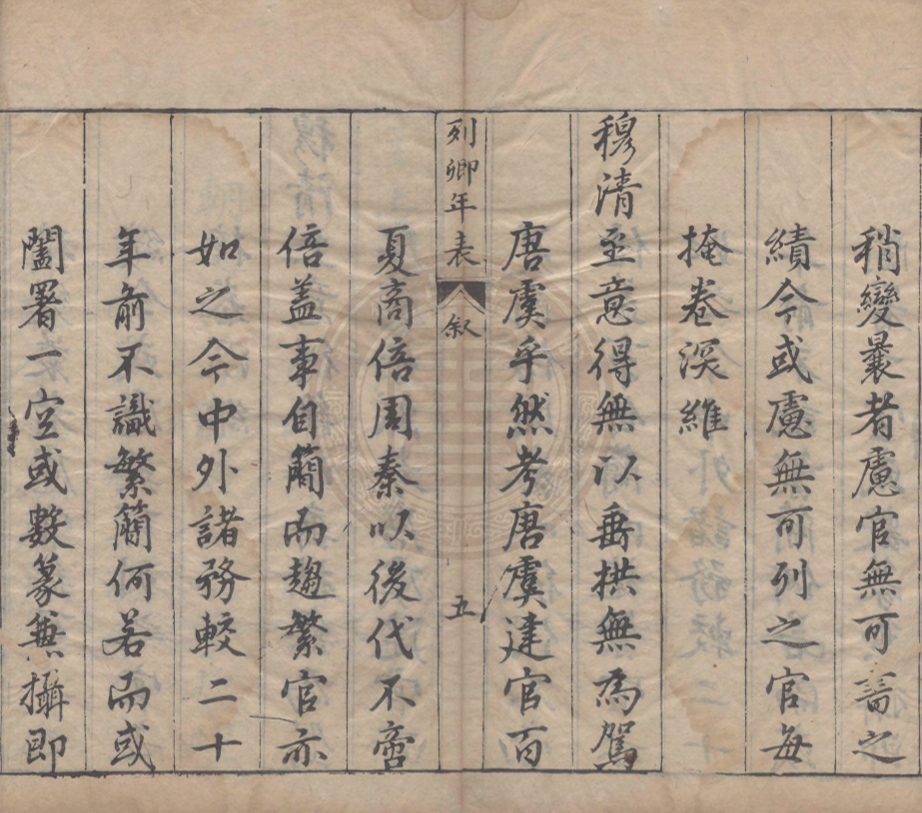 稍變曩者慮官無可書之
績今或慮無可列之官每
掩卷深維
穆清至意得無以垂拱無為駕
唐虞乎然考唐虞建官百
列卿年表
叙
五
夏商倍周秦以後代不啻
倍蓋事自簡而趨繁官亦
如之今中外諸務較二十
年前不識繁簡何若而或
闔署一空或數篆兼攝即